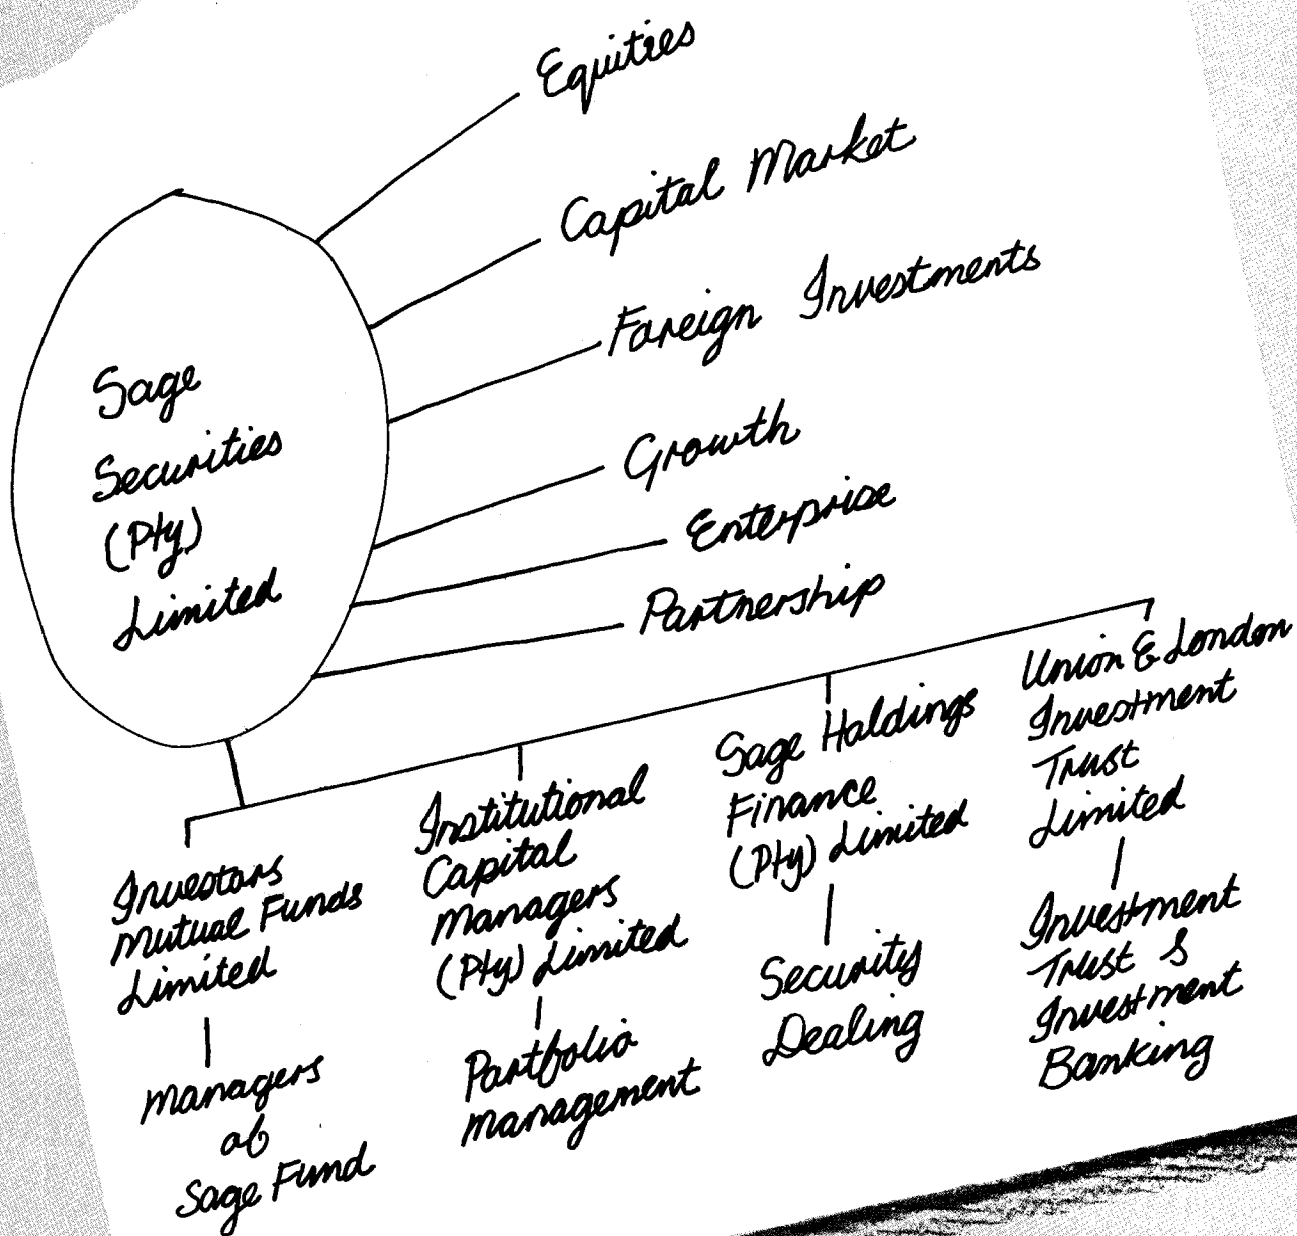 Equities
Capital Market
Foreign Investments
Growth
Enterprise
Partnership
Sage
Securities
(Pty)
Limited
Investors
Mutual Funds
Limited
Managers
of
Sage Fund
Institutional
Capital
Managers
(Pty) Limited
Portfolio
Management
Sage Holdings
Finance
(Pty) Limited
Security
Dealing
Union & London
Investment
Trust
Limited
Investment
Trust &
Investment
Banking